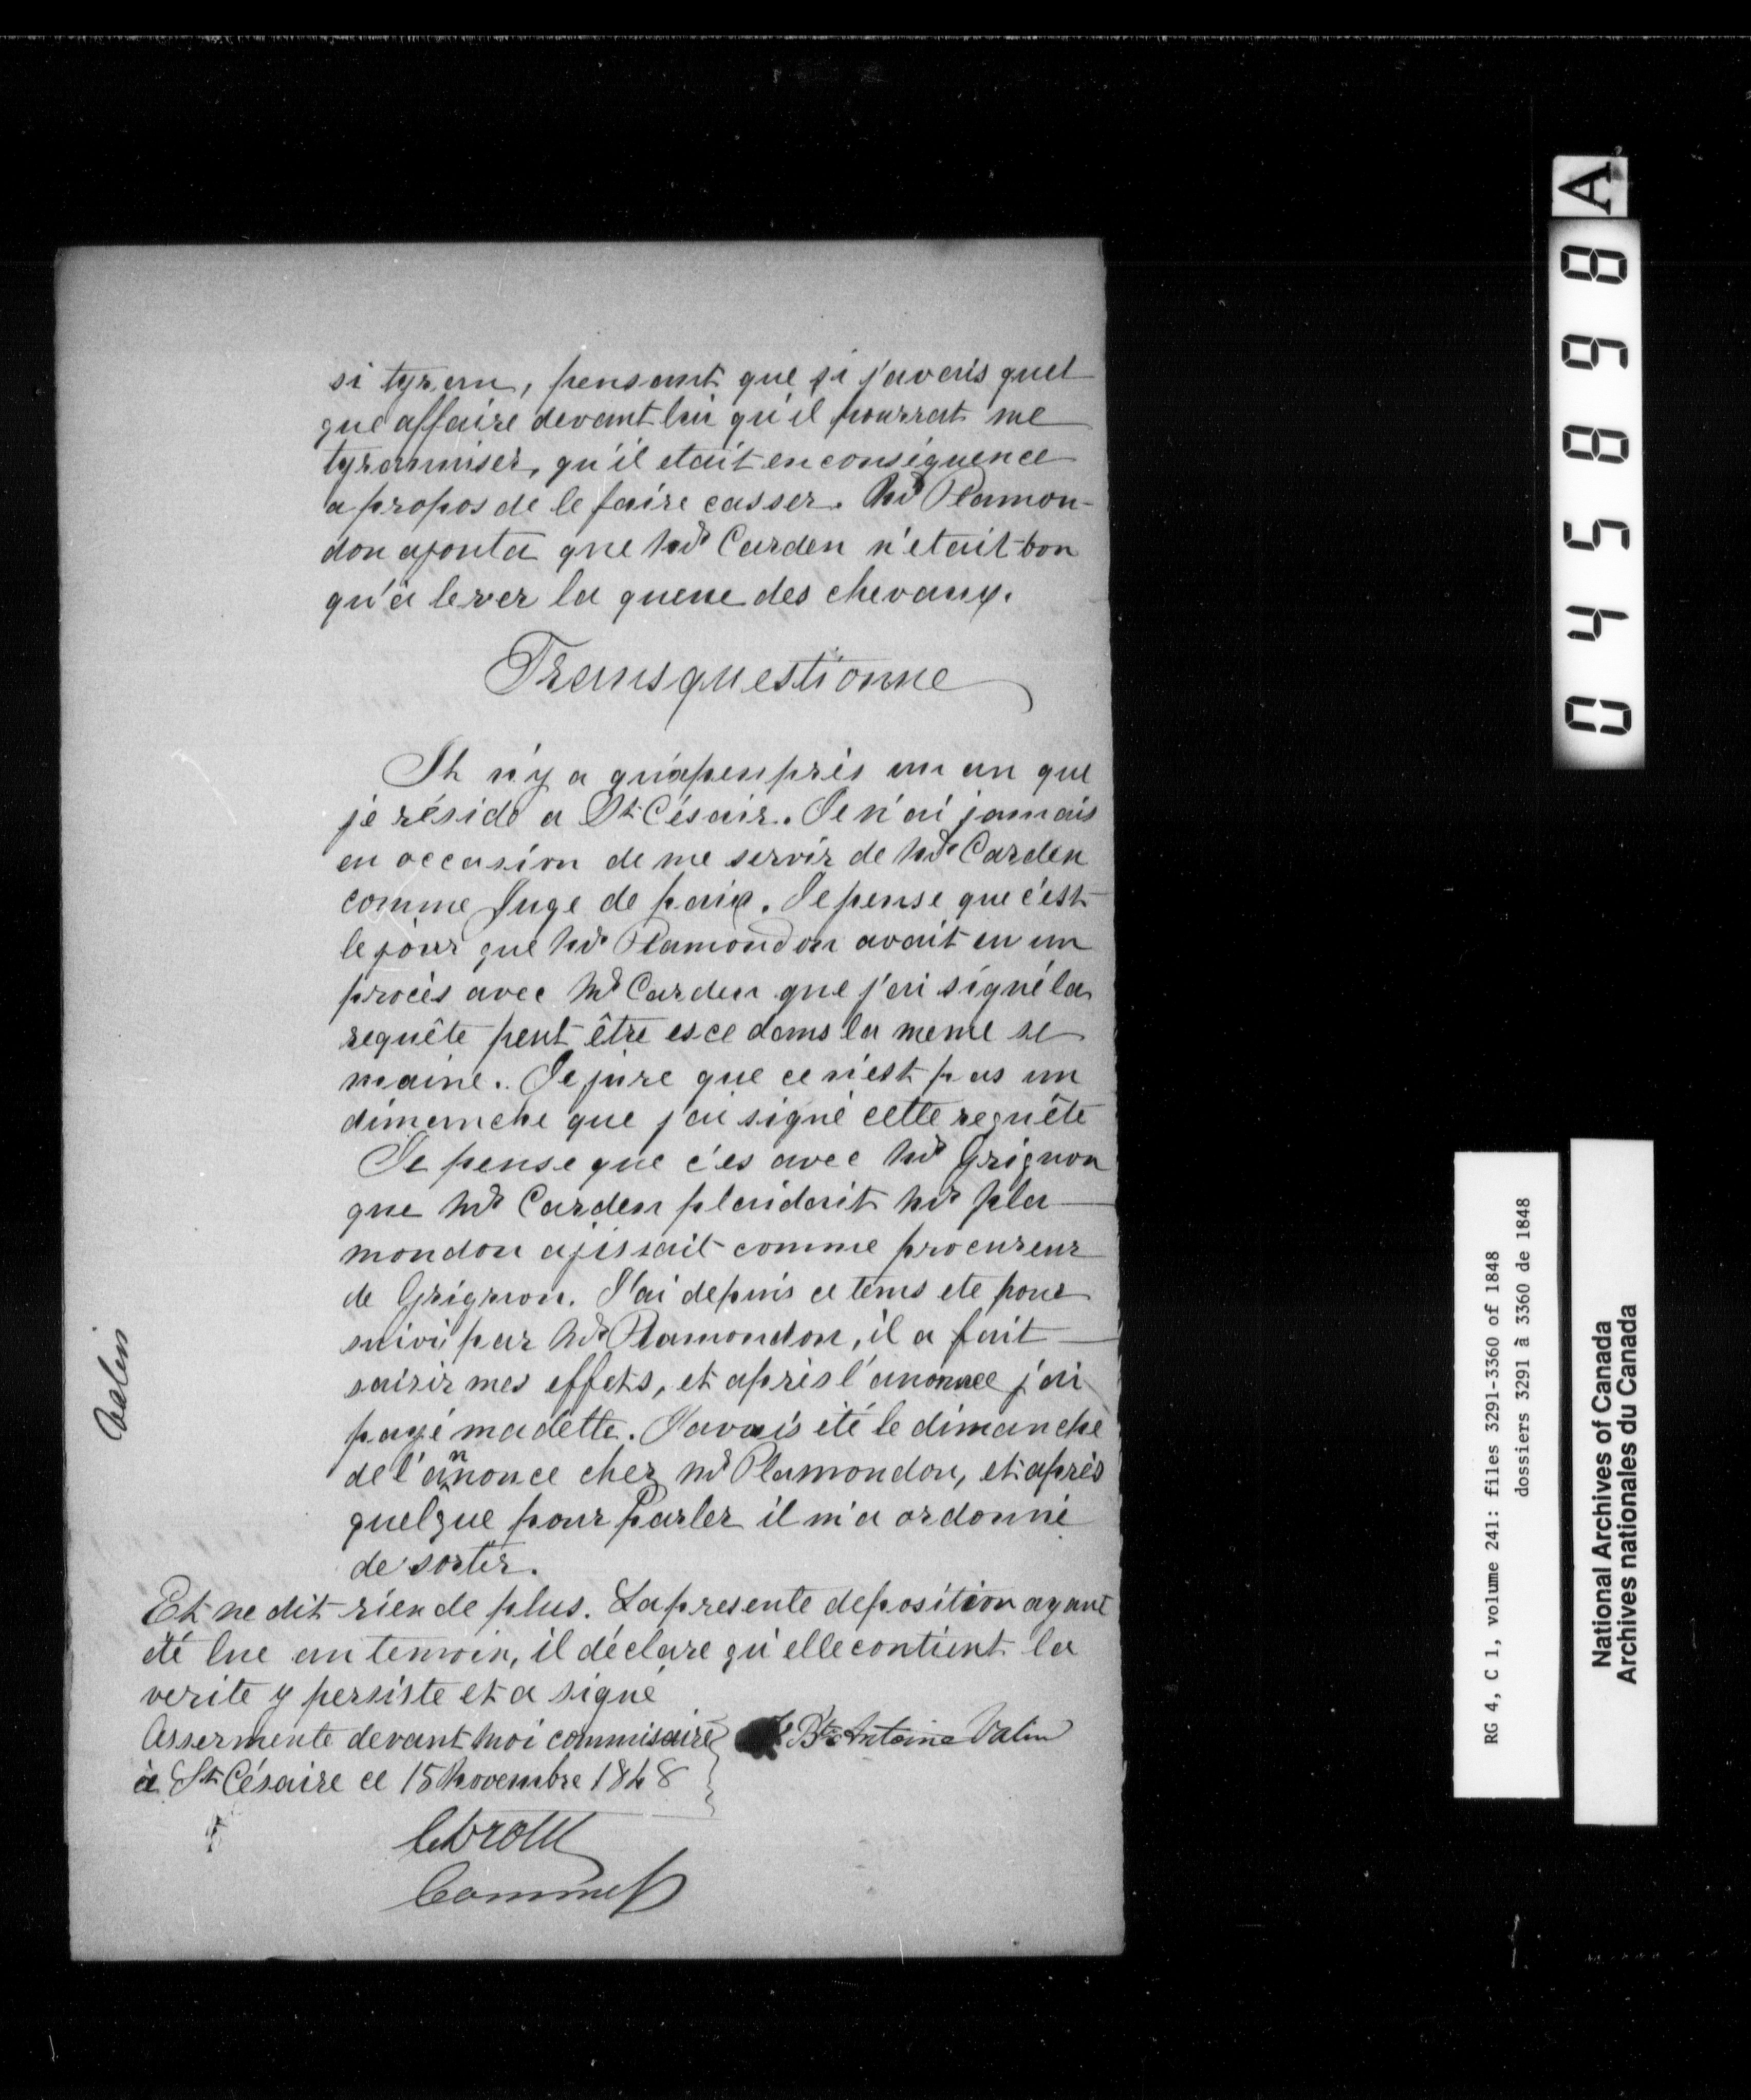 si tyran, pensant que si j'avais quel
que affaire devant lui qu'il pourrat me
tyranniser, qu'il etait en conséquence
a propos de le faire casser. Mr Plamon-
don ajouta que Mr Carden n'etait bon
qu'à lever la queue des chevaux.
Transquestionne
Il n'y a qu'apeuprès un an que
je réside a St Césair. Je n'ai jamais
eu occasion de me servir de Mr Carden
comme Juge de paix. Je pense que c'est
le jour que Mr Plamondon avait eu un
procès avec Mr Carden que j'ai signé la
requête peut être esce dans la meme se
maine. Je jure que ce n'est pas un
dimanche que j'ai signé cette requête
Je pense que c'es avec Mr Grignon
que Mr Carden plaidait Mr Pla
mondon ajissait comme procureur
de Grignon. J'ai depuis ce tems ete pour
suivi par Mr Plamondon, il a fait
saisir mes effets, et après l'anonnce j'ai
payé ma dette. J'avais été le dimanche
de l'annonce chez Mr Plamondon, et après
quelque pour Parler il m'a ordonné
de sortir.
Et ne dit rien de plus. La presente deposition ayant
été lue au temoin, il déclare qu'elle contient la
verite y persiste et a signé
Assermente devant moi commisaire
à St Césaire ce 15 Novembre 1848
Bte Antoine Valin
Commr
Valin
A
045898
RG 4, C 1, volume 241: files 3291-3360 of 1848
dossiers 3291 à 3360 de 1848
National Archives of Canada
Archives nationales du Canada